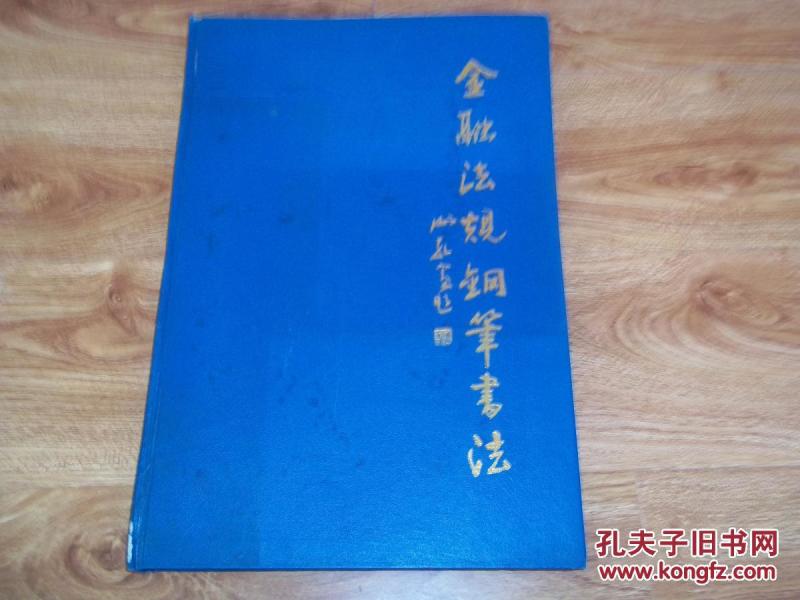 金融法规鋼筆書法
孔夫子旧书网
www.kongfz.com